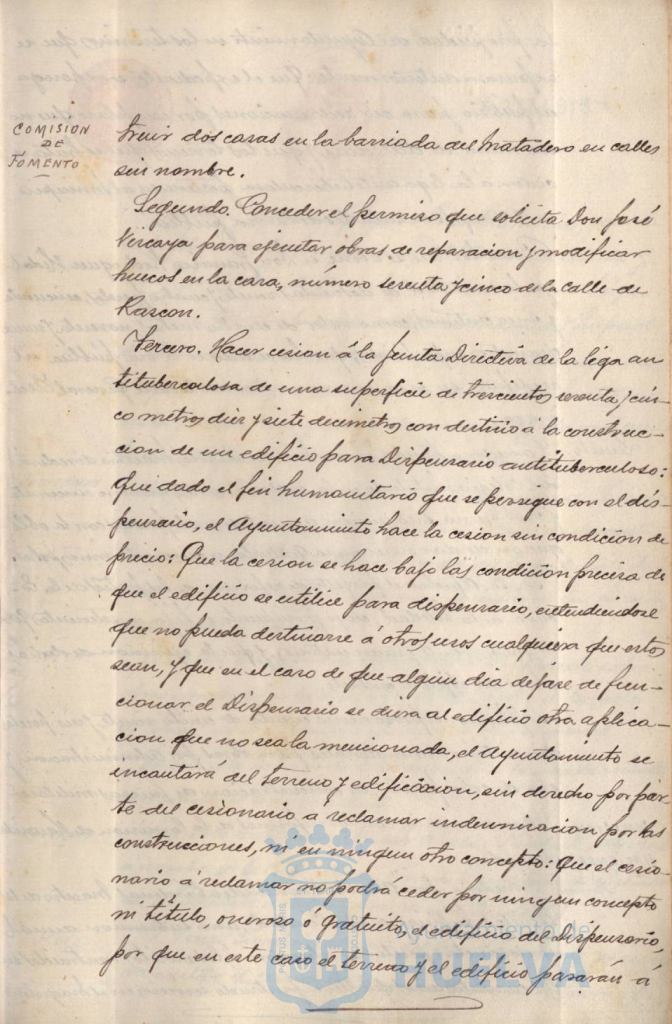 COMISION
DE
FOMENTO
truir dos casas en la barriada del Matadero en calles
sin nombre.
Segundo. Conceder el permiso que solicita Don José
Vizcaya para ejecutar obras de reparacion y modificar
huecos en la casa, número sesenta y cinco de la calle de
Rascon.
Tercero. Hacer cesion á la Junta Directiva de la liga an
titubercolosa de una superficie de trescientos sesenta y cin-
co metros diez y siete decimetros con destino á la construc-
cion de un edificio para Dispensario antituberculoso:
que dado el fin humanitario que se persigue con el dis-
pensario, el Ayuntamiento hace la cesion sin condicion de
precio: Que la cesion se hace bajo las condicion precisa de
que el edificio se utilice para dispensario, entendiendose
que no pueda destinarse á otros usos cualquiera que estos
sean, y que en el caso de que algun dia dejase de fun-
cionar el Dispensario se diera al edificio otra aplica-
cion que no sea la mencionada, el Ayuntamiento se
incautará del terreno y edificacion, sin derecho por par
te del cesionario á reclamar indemnizacion por las
construcciones, ni en ningun otro concepto: Que el cesio-
nario á reclamar no podrá ceder por ningun concepto
ni título, oneroso ó gratuito, el edificio del Dispensario,
por que en este caso el terreno y el edificio pasarán á
Ayuntamiento de
HUELVA